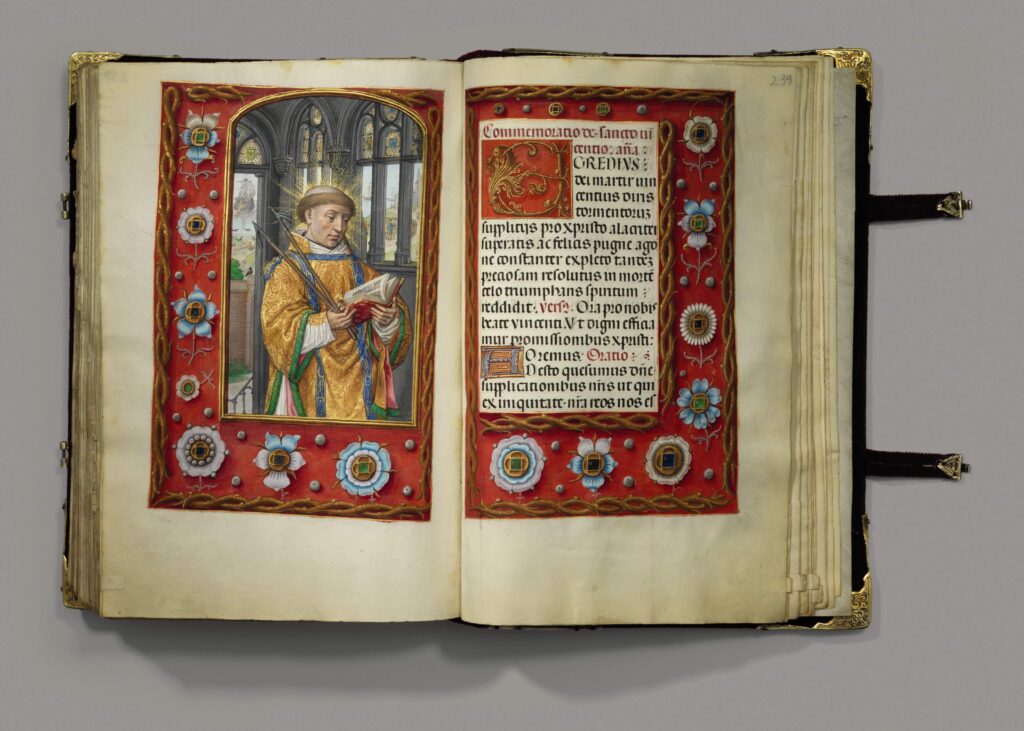 239
Commemoratio de sancto vi
centio: ana:
EGREDIVS
dei martir vin
centius diris
tormentoruz
supplitijs pro xpristo alacriter
superatis ac felicis pugne ago
ne constanter expleto tandez
preciosam resolutus in morte
celo triumphans spiritum
reddidit. vers9. Ora pro nobis
beate vincenti. Vt digni efficia
mur promissionibus xpristi:
Oremus Oratio:
ADesto quesumus dne
supplicationibus nris ut qui
ex iniquitate nra reos nos es